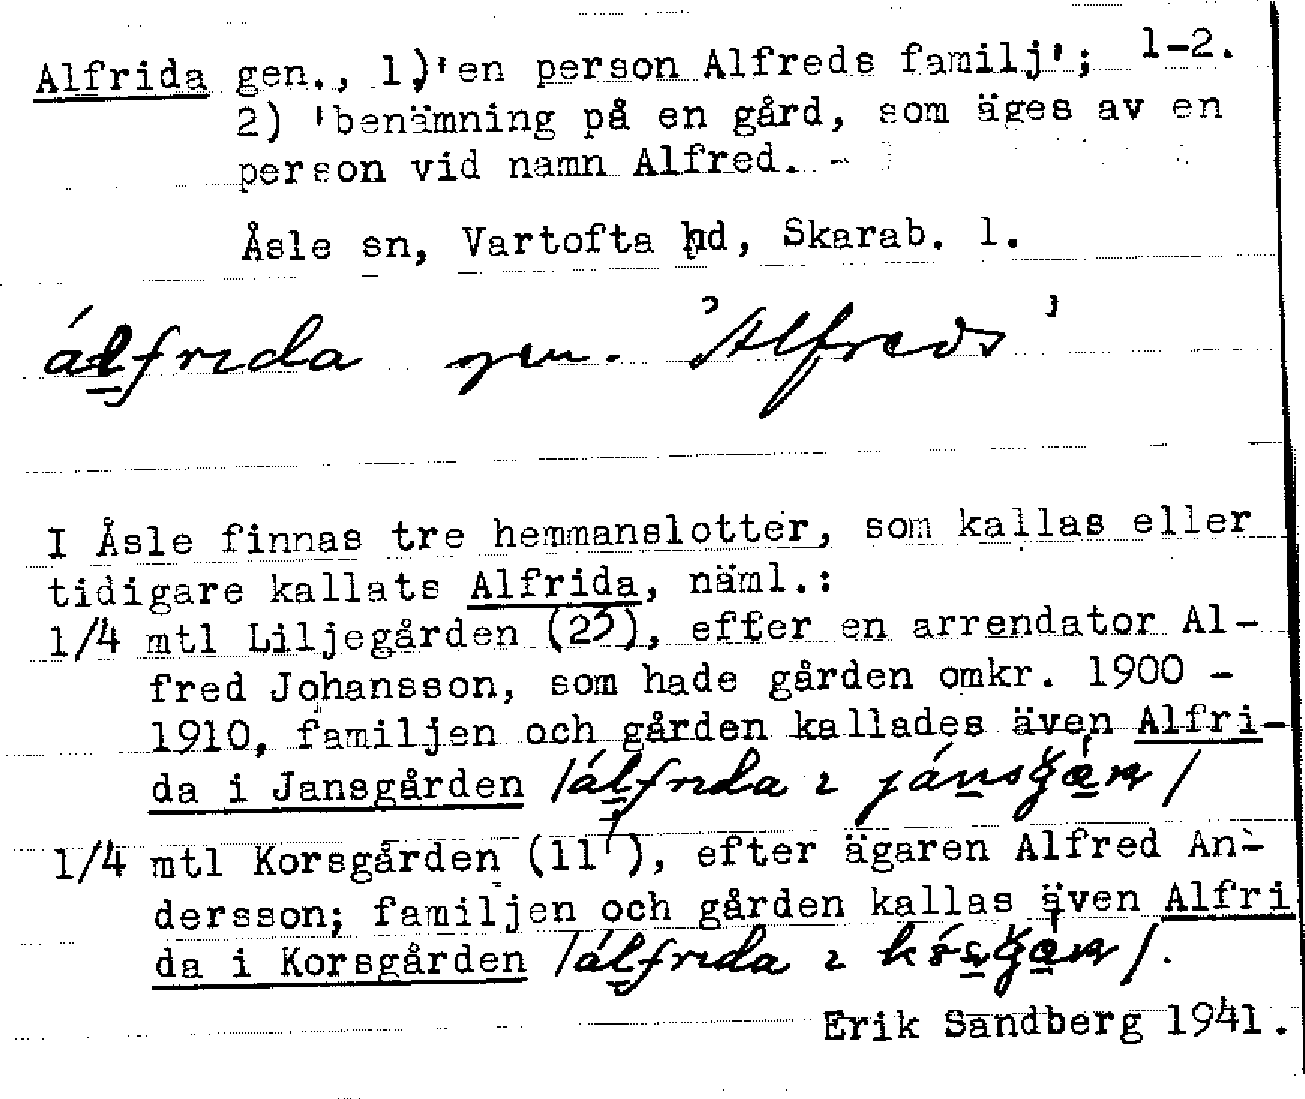 Alfrida gen., 1)'en person Alfreds familj'; 1-2.
2) 'benämning på en gård, som äges av en
person vid namn Alfred. -
Åsle sn, Vartofta hd, Skarab. l.
álfrida gen. 'Alfreds'
I Åsle finnas tre hemmanslotter, som kallas eller
tidigare kallats Alfrida, näml.:
1/4 mtl Liljegården (2³), efter en arrendator Al-
fred Johansson, som hade gården omkr. 1900 -
1910, familjen och gården kallades även Alfri-
da i Jansgården /álfrida ı
1/4 mtl Korsgården (11⁷), efter ägaren Alfred An-
dersson; familjen och gården kallas även Alfri
da i Korsgården /álfrida ı
Erik Sandberg 1941.